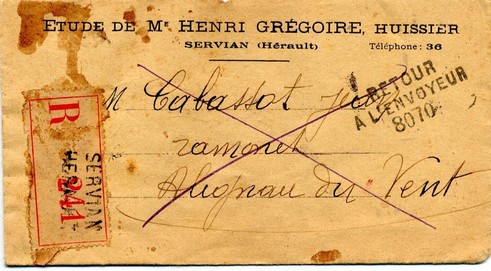 ETUDE DE Mᴱ HENRI GRÉGOIRE, HUISSIER
SERVIAN (Hérault) Téléphone: 36
RETOUR
A L'ENVOYEUR
8070
M Cabassot
ramonet
Alignan du Vent
R
SERVIAN
241